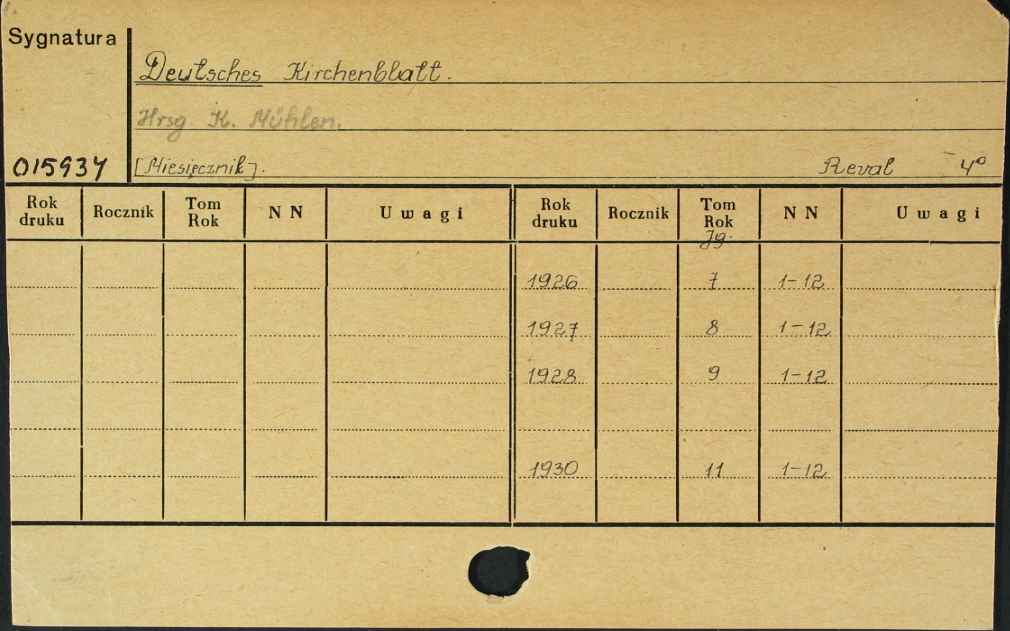 Sygnatura
Deutsches Kirchenblatt.
Hrsg K. Mühlen.
015934 [Miesięcznik]. Reval 4°
Rok druku Rocznik Tom Rok N N Uwagi Rok druku Rocznik Tom Rok N N Uwagi
Jg.
1926 7 1-12
1927 8 1-12
1928 9 1-12
1930 11 1-12